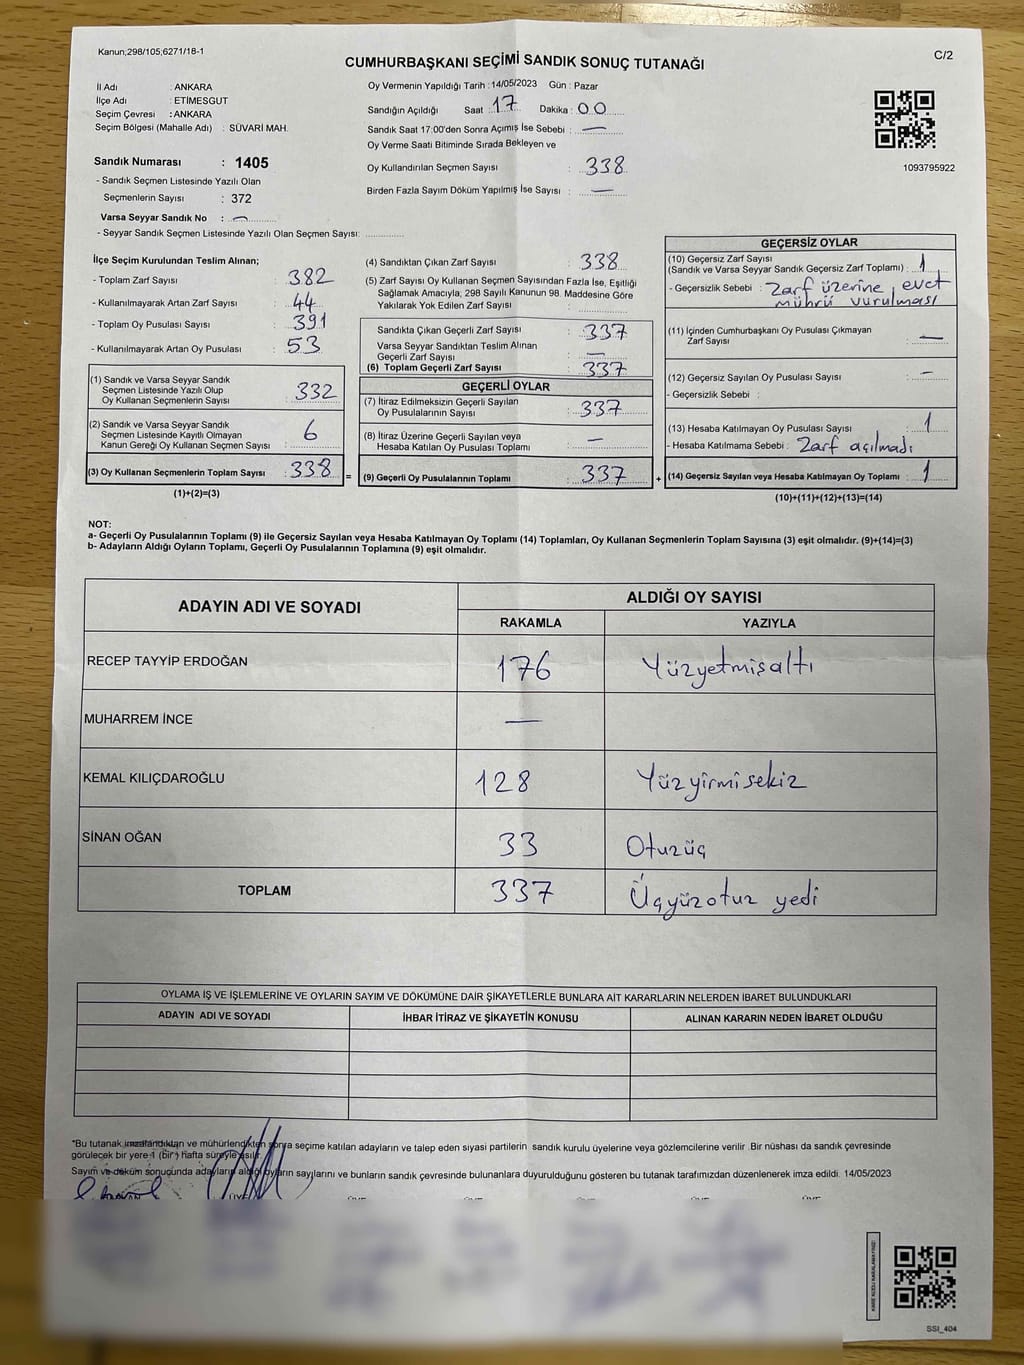 Kanun,298/105;6271/18-1
C/2
CUMHURBAŞKANI SEÇİMİ SANDIK SONUÇ TUTANAĞI
İl Adı : ANKARA
İlçe Adı : ETİMESGUT
Seçim Çevresi : ANKARA
Seçim Bölgesi (Mahalle Adı) : SÜVARİ MAH.
Sandık Numarası : 1405
- Sandık Seçmen Listesinde Yazılı Olan
Seçmenlerin Sayısı : 372
Varsa Seyyar Sandık No : —
- Seyyar Sandık Seçmen Listesinde Yazılı Olan Seçmen Sayısı: ............
Oy Vermenin Yapıldığı Tarih :14/05/2023 Gün : Pazar
Sandığın Açıldığı Saat : 17 Dakika : 00
Sandık Saat 17:00'den Sonra Açımış İse Sebebi : —
Oy Verme Saati Bitiminde Sırada Bekleyen ve
Oy Kullandırılan Seçmen Sayısı : 338
Birden Fazla Sayım Döküm Yapılmış İse Sayısı : —
1093795922
İlçe Seçim Kurulundan Teslim Alınan;
- Toplam Zarf Sayısı : 382
- Kullanılmayarak Artan Zarf Sayısı : 44
- Toplam Oy Pusulası Sayısı : 391
- Kullanılmayarak Artan Oy Pusulası : 53
(1) Sandık ve Varsa Seyyar Sandık
Seçmen Listesinde Yazılı Olup
Oy Kullanan Seçmenlerin Sayısı : 332
(2) Sandık ve Varsa Seyyar Sandık
Seçmen Listesinde Kayıtlı Olmayan
Kanun Gereği Oy Kullanan Seçmen Sayısı : 6
(3) Oy Kullanan Seçmenlerin Toplam Sayısı : 338 =
(1)+(2)=(3)
(4) Sandıktan Çıkan Zarf Sayısı : 338
(5) Zarf Sayısı Oy Kullanan Seçmen Sayısından Fazla İse, Eşitliği
Sağlamak Amacıyla, 298 Sayılı Kanunun 98. Maddesine Göre
Yakılarak Yok Edilen Zarf Sayısı : ............
Sandıkta Çıkan Geçerli Zarf Sayısı : 337
Varsa Seyyar Sandıktan Teslim Alınan
Geçerli Zarf Sayısı : —
(6) Toplam Geçerli Zarf Sayısı : 337
GEÇERLİ OYLAR
(7) İtiraz Edilmeksizin Geçerli Sayılan
Oy Pusulalarının Sayısı : 337
(8) İtiraz Üzerine Geçerli Sayılan veya
Hesaba Katılan Oy Pusulası Toplamı : —
(9) Geçerli Oy Pusulalarının Toplamı : 337 +
GEÇERSİZ OYLAR
(10) Geçersiz Zarf Sayısı
(Sandık ve Varsa Seyyar Sandık Geçersiz Zarf Toplamı) : 1
- Geçersizlik Sebebi : Zarf üzerine evet
mührü vurulması
(11) İçinden Cumhurbaşkanı Oy Pusulası Çıkmayan
Zarf Sayısı : —
(12) Geçersiz Sayılan Oy Pusulası Sayısı : —
- Geçersizlik Sebebi :
(13) Hesaba Katılmayan Oy Pusulası Sayısı : 1
- Hesaba Katılmama Sebebi : Zarf açılmadı
(14) Geçersiz Sayılan veya Hesaba Katılmayan Oy Toplamı : 1
(10)+(11)+(12)+(13)=(14)
NOT:
a- Geçerli Oy Pusulalarının Toplamı (9) ile Geçersiz Sayılan veya Hesaba Katılmayan Oy Toplamı (14) Toplamları, Oy Kullanan Seçmenlerin Toplam Sayısına (3) eşit olmalıdır. (9)+(14)=(3)
b- Adayların Aldığı Oyların Toplamı, Geçerli Oy Pusulalarının Toplamına (9) eşit olmalıdır.
ADAYIN ADI VE SOYADI
ALDIĞI OY SAYISI
RAKAMLA YAZIYLA
RECEP TAYYİP ERDOĞAN 176 Yüzyetmişaltı
MUHARREM İNCE —
KEMAL KILIÇDAROĞLU 128 Yüzyirmisekiz
SİNAN OĞAN 33 Otuzüç
TOPLAM 337 Üçyüzotuz yedi
OYLAMA İŞ VE İŞLEMLERİNE VE OYLARIN SAYIM VE DÖKÜMÜNE DAİR ŞİKAYETLERLE BUNLARA AİT KARARLARIN NELERDEN İBARET BULUNDUKLARI
ADAYIN ADI VE SOYADI İHBAR İTİRAZ VE ŞİKAYETİN KONUSU ALINAN KARARIN NEDEN İBARET OLDUĞU
*Bu tutanak imzalandıktan ve mühürlendikten sonra seçime katılan adayların ve talep eden siyasi partilerin sandık kurulu üyelerine veya gözlemcilerine verilir .Bir nüshası da sandık çevresinde
görülecek bir yere 1 (bir) hafta süreyle asılır.
Sayım ve döküm sonucunda adayların aldığı oyların sayılarını ve bunların sandık çevresinde bulunanlara duyurulduğunu gösteren bu tutanak tarafımızdan düzenlenerek imza edildi. 14/05/2023
SSI_404